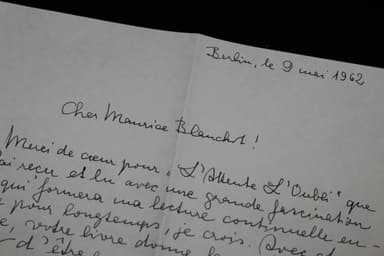 Berlin, le 9 mai 1962
Cher Maurice Blanchot !
Merci de cœur pour „L'Attente L'Oubli" que
ai reçu et lu avec une grande fascination
qui formera ma lecture continuelle en-
pour longtemps, je crois. Avec
votre livre donne
d'être